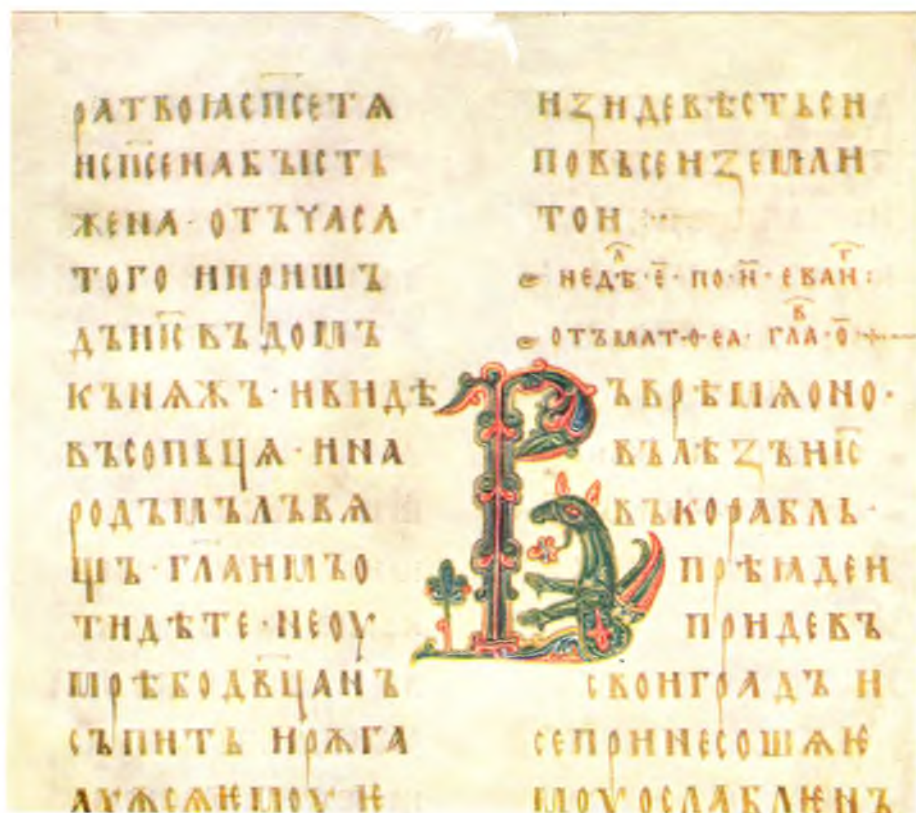 ратвоꙗсп҃сетѧ
исп҃сенабꙑсть
жена · отъчаса
того ипришъ
дъии҃свъдомъ
кънѧжъ · ивидѣ
въсопьцѧ · ина
родъмълъвѧ
щъ · гл҃аимъо
тидѣте · неоу
мрѣбодв҃цанъ
съпить ирѫга
ахѫсѧѥмоу и
изидевѣстьси
повьсеиземли
тои
недѣ · е҃ · по · н҃ · еван :
отъмат · ѳ · еа · гла · о҃
Въврѣмѧоно ·
вълѣзъи҃с
въкорабль ·
прѣидеи
придевъ
своиградъ и
сепринесошѧѥ
моуославлѥнъ